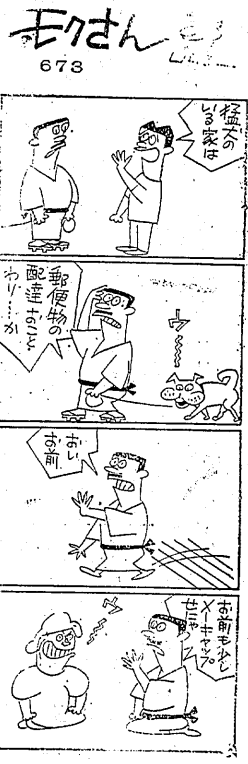 モクさん
673
猛犬の
いる家は
郵便物の
配達おこと
わり……か
ウ〜〜〜
おい
お前
お前も少し
メーキャップ
せにゃ
ウ〜〜〜